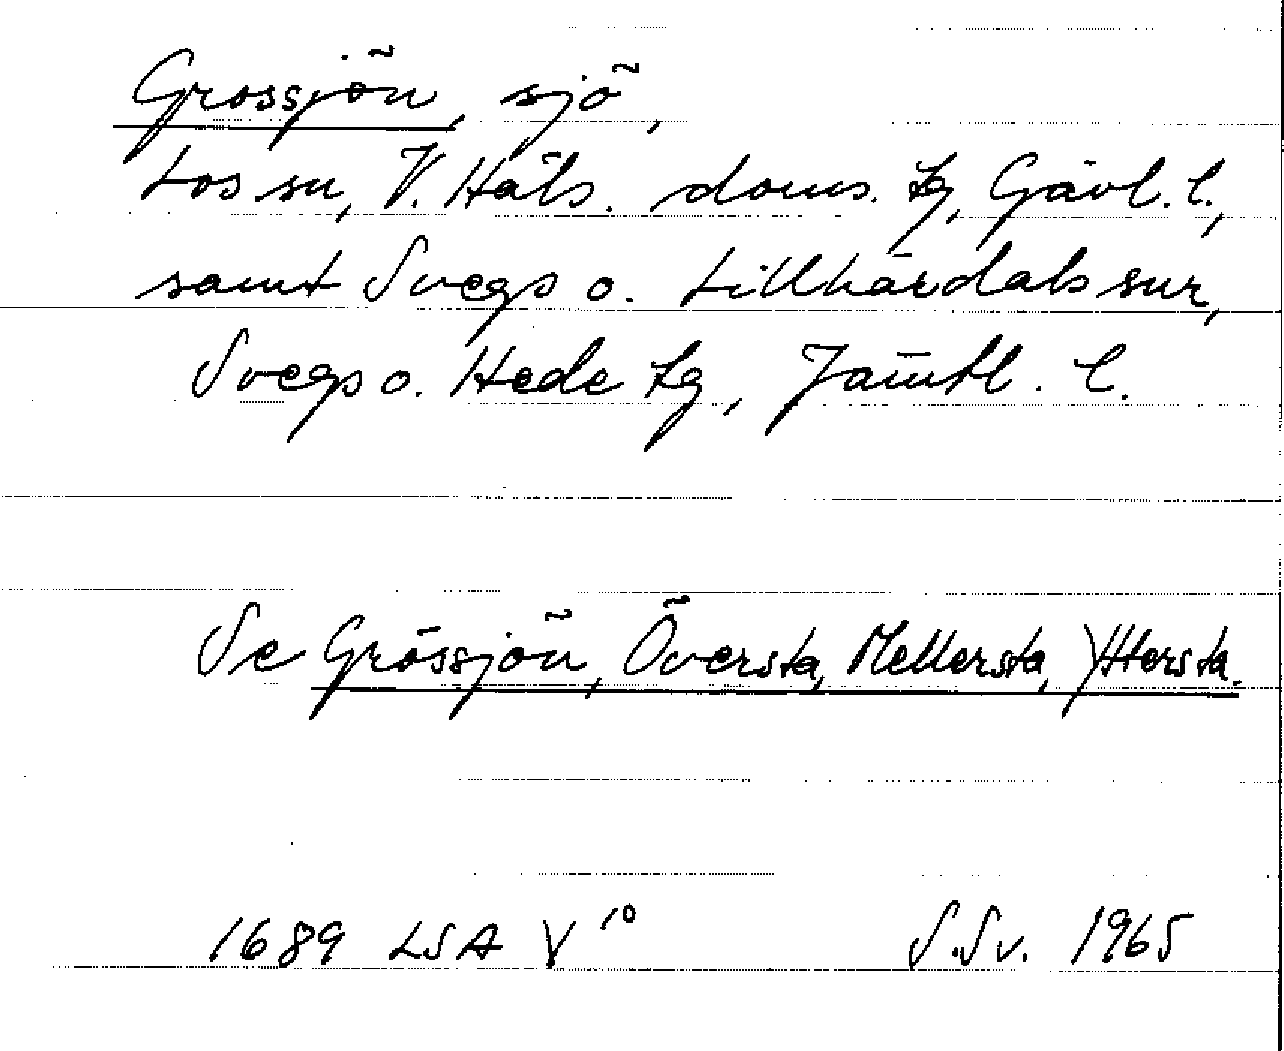 Grossjön, sjö,
Los sn, V. Häls. doms. tg, Gävl. l.,
samt Svegs o. Lillhärdals snr,
Svegs o. Hede tg, Jämtl. l.
Se Grössjön, Översta, Mellersta, Yttersta.
1689 LSA V¹⁰ S.Sv. 1965